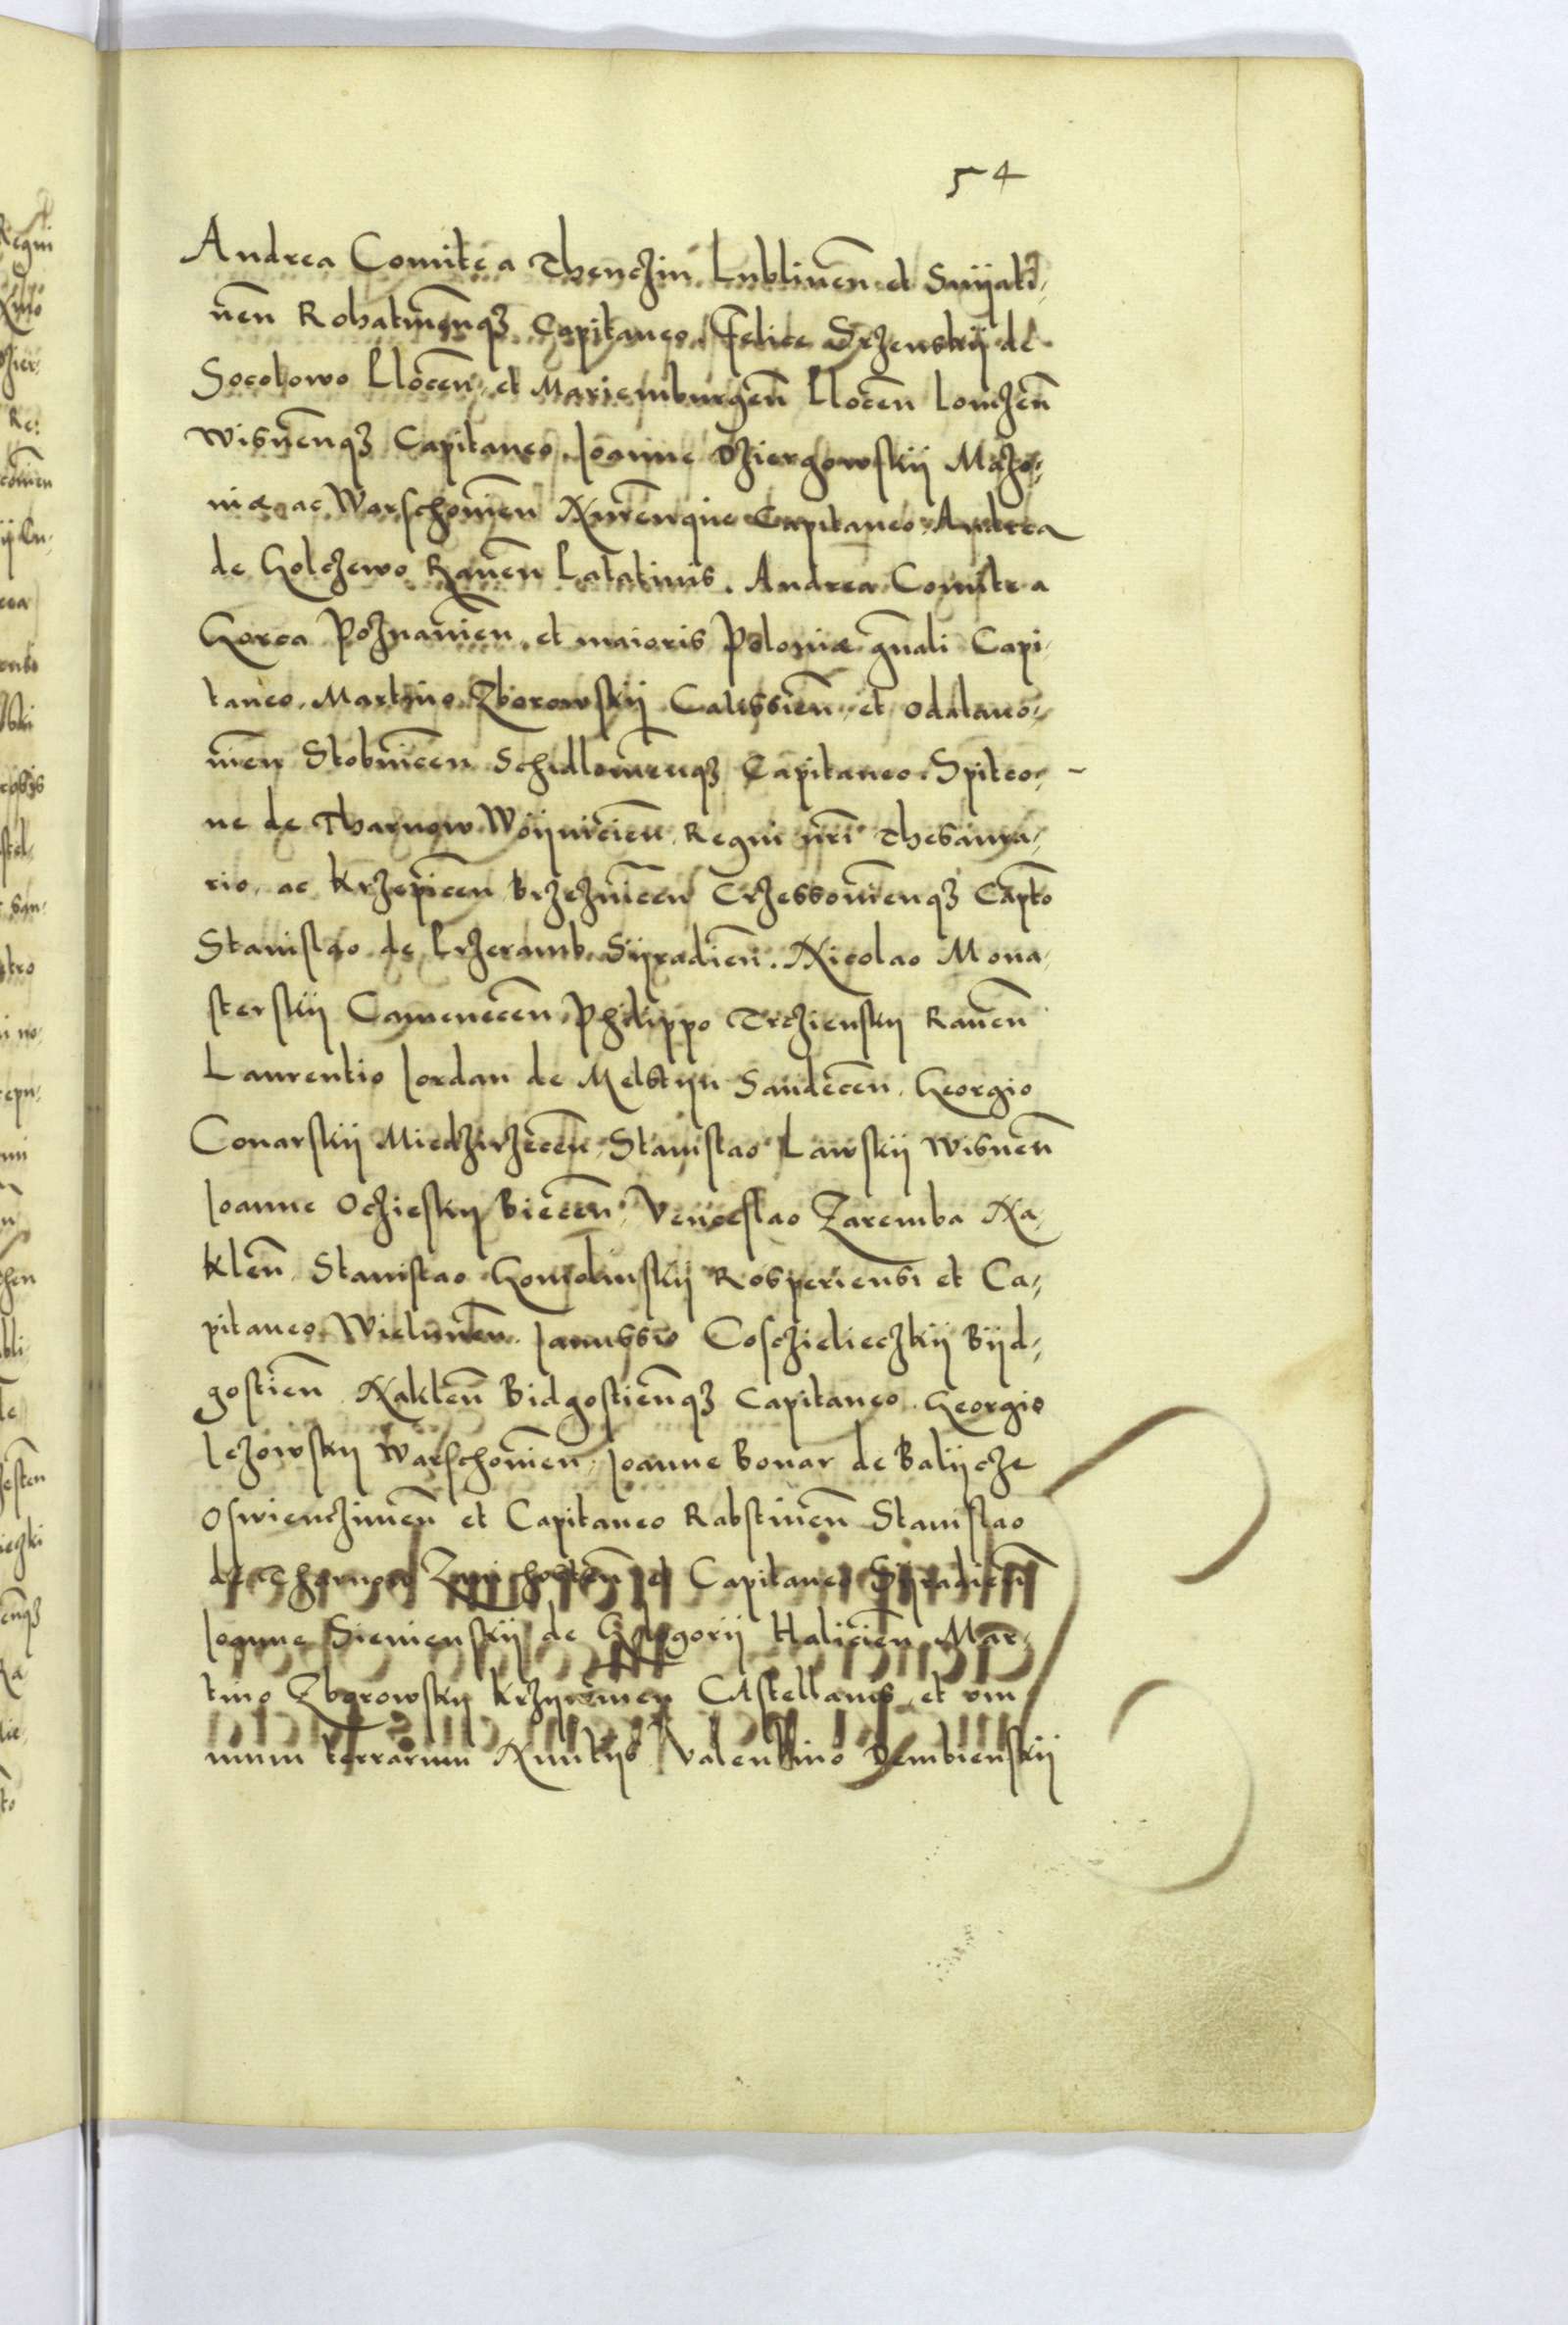 54
Andrea Comite a Thenczin Lublinen̄ et Snijati-
nen̄ Rohatinen̄qꝫ Capitaneo. Felice Srzenskij de
Socolowo Plocen̄ et Mariemburgen̄ Plocen̄ Lomzen̄
Wisnen̄qꝫ Capitaneo. Joanne Dziergowskij Mazo-
uiæ ac Warschouien̄ Nurēnque Capitaneo. Andrea
de Golczewo Rauen̄ Palatinis. Andrea Comite a
Gorca Poznanien̄ et maioris Poloniæ gn̄ali Capi-
taneo. Martino Zborowskij Calissien̄ et Odalano-
uien̄ Stobnicen̄ Schidlouienqꝫ Capitaneo. Spitco-
ne de Tharnow Woijnicien̄ Regni nr̄i Thesaura-
rio, ac Krzepicen̄ Brzeznicen̄ Crzessouienqꝫ Capt̄o
Stanislao de Przeramb Sijradien̄. Nicolao Mona-
sterskij Camenecen̄ Philippo Trczienskij Rauen̄
Laurentio Jordan de Melstijn Sandecen̄. Georgio
Conarskij Miedzirzecen̄ Stanislao Lawskij Wisnen̄
Joanne Oczieskij Biecen̄ Venceslao Zaremba Na-
klen̄ Stanislao Gomolinskij Rosperiensi et Ca-
pitaneo Wielunen̄. Janussio Cosczielieczkij Bijd-
gostien̄ Naklen̄ Bidgostien̄qꝫ Capitaneo. Georgio
Jezowskij Warschouien̄. Joanne Bonar de Balijcze
Oswienczimen̄ et Capitaneo Rabstinen̄ Stanislao
de Tharnow Zawichosten̄ et Capitaneo Sijradien̄
Joanne Sienienskij de Gologorij Halicien̄ Mar-
tino Zborowskij Krzijwinen̄ Castellanis, et om
nium terrarum Nuntijs Valentino Dembienskij